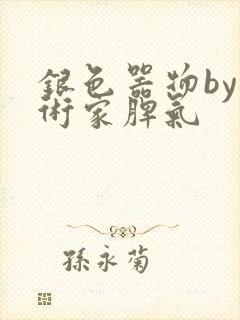 銀色器物by
術家脾氣
孫永菊